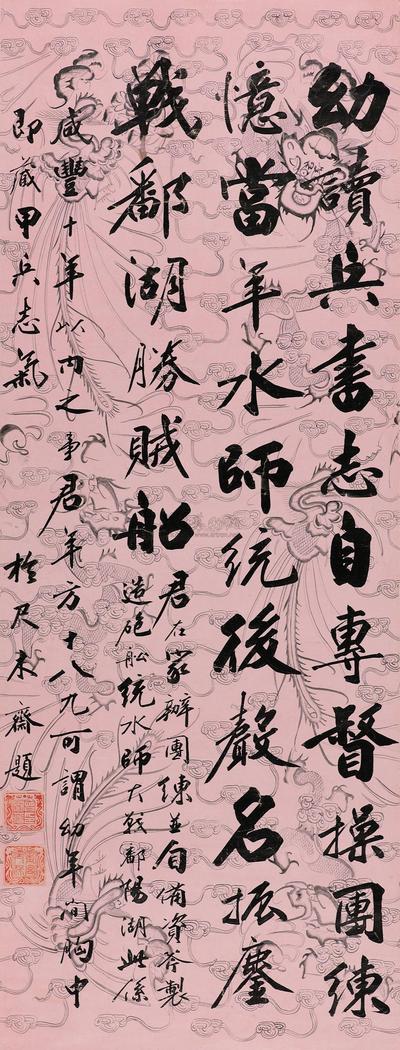 幼讀兵書志自專督操團練
憶當年水師統後聲名振鏖
戰鄱湖勝賊船
君在家辦團練並自備資斧製
造砲船統水師大戰鄱陽湖此係
咸豐十年以內之事君年方十八九可謂幼年間胸中
即藏甲兵志氣
於尺木齋題